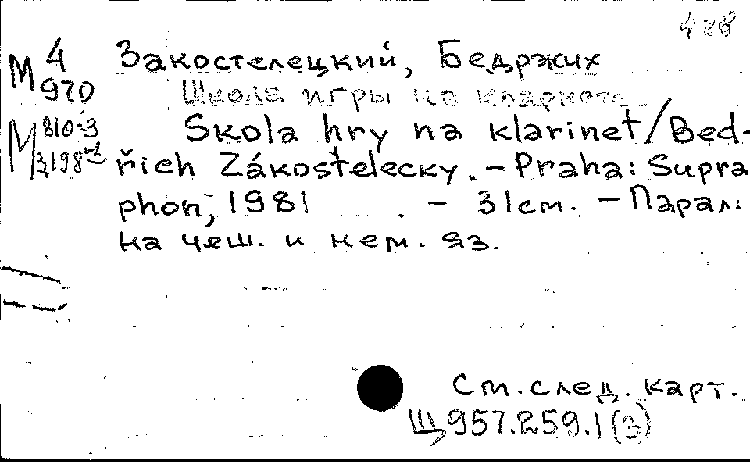 478
М 4 Закостелецкий, Бедржих
970 Школа игры на кларнете
М 810-3 Skola hry na klarinet/Bed-
řich Zákostelecky. – Praha: Supra
phon, 1981 . – 31см. – Парал.
на чеш. и нем. яз.
См. след. карт.
Щ957.259.1(3)